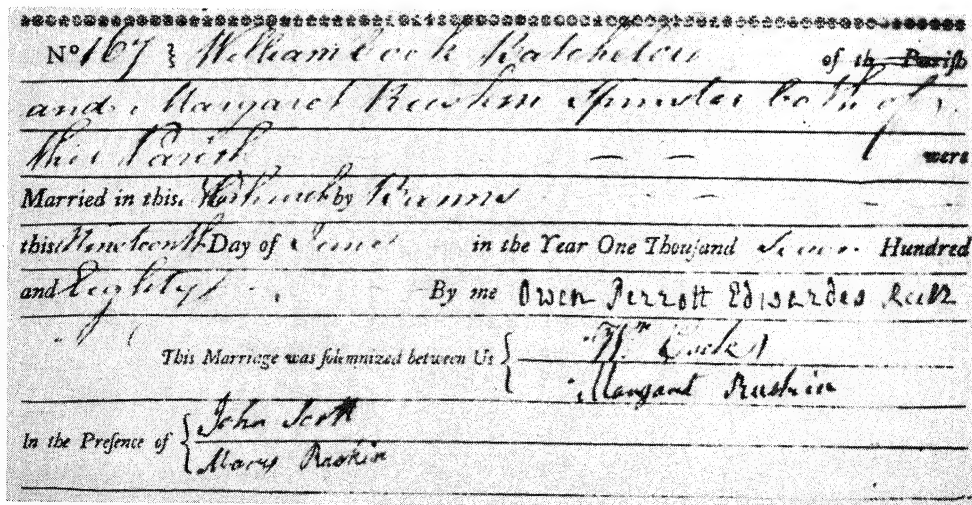 No 167 } William Cock Batchelor of th Pariſh
and Margaret Ruskin Spinster both of
this Parish — — were
Married in this Church by Banns
this Nineteenth Day of June in the Year One Thouſand Seven Hundred
and Eighty By me Owen Perrott Edwardes
This Marriage was ſolemnized between Us { Wm Cock
Margaret Ruskin
In the Preſence of { John Scott
Mary Ruskin